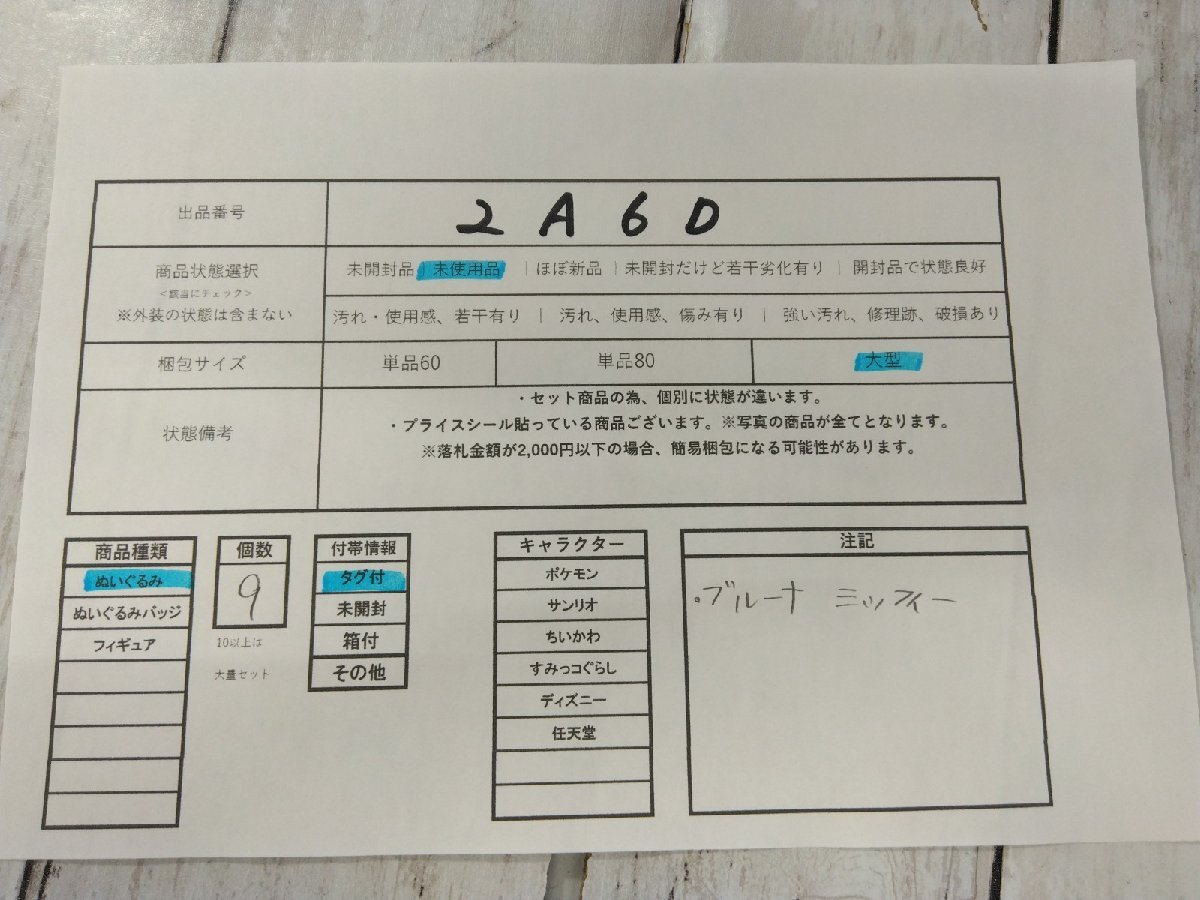 出品番号 2A6D
商品状態選択
<該当にチェック>
※外装の状態は含まない
未開封品 | 未使用品 | ほぼ新品 | 未開封だけど若干劣化有り | 開封品で状態良好
汚れ・使用感、若干有り | 汚れ、使用感、傷み有り | 強い汚れ、修理跡、破損あり
梱包サイズ 単品60 単品80 大型
状態備考
・セット商品の為、個別に状態が違います。
・プライスシール貼っている商品ございます。※写真の商品が全てとなります。
※落札金額が2,000円以下の場合、簡易梱包になる可能性があります。
商品種類
ぬいぐるみ
ぬいぐるみバッジ
フィギュア
個数
9
10以上は
大量セット
付帯情報
タグ付
未開封
箱付
その他
キャラクター
ポケモン
サンリオ
ちいかわ
すみっコぐらし
ディズニー
任天堂
注記
・ブルーナ ミッフィー